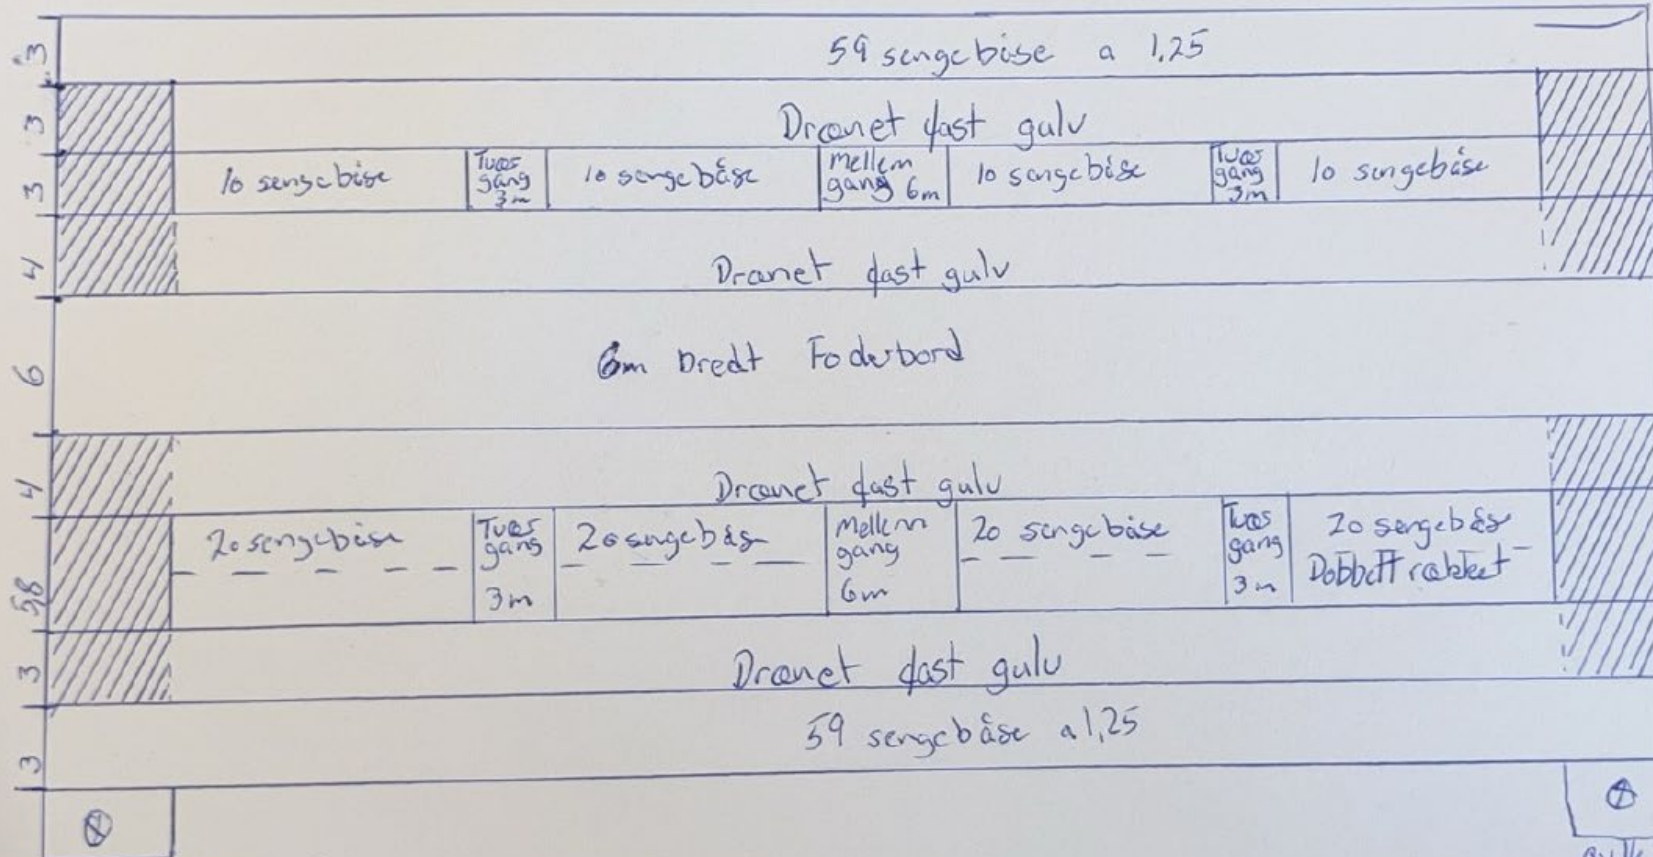 3
59 sengebåse a 1,25
3
Drænet fast gulv
3
10 sengebåse
Tvær
gang
3m
10 sengebåse
Mellem
gang 6m
10 sengebåse
Tvær
gang
3m
10 sengebåse
4
Drænet fast gulv
6
6m bredt Foderbord
4
Drænet fast gulv
5,8
20 sengebåse
Tvær
gang
3m
20 sengebåse
Mellem
gang
6m
20 sengebåse
Tvær
gang
3m
20 sengebåse
Dobbelt rækket
3
Drænet fast gulv
3
59 sengebåse a 1,25